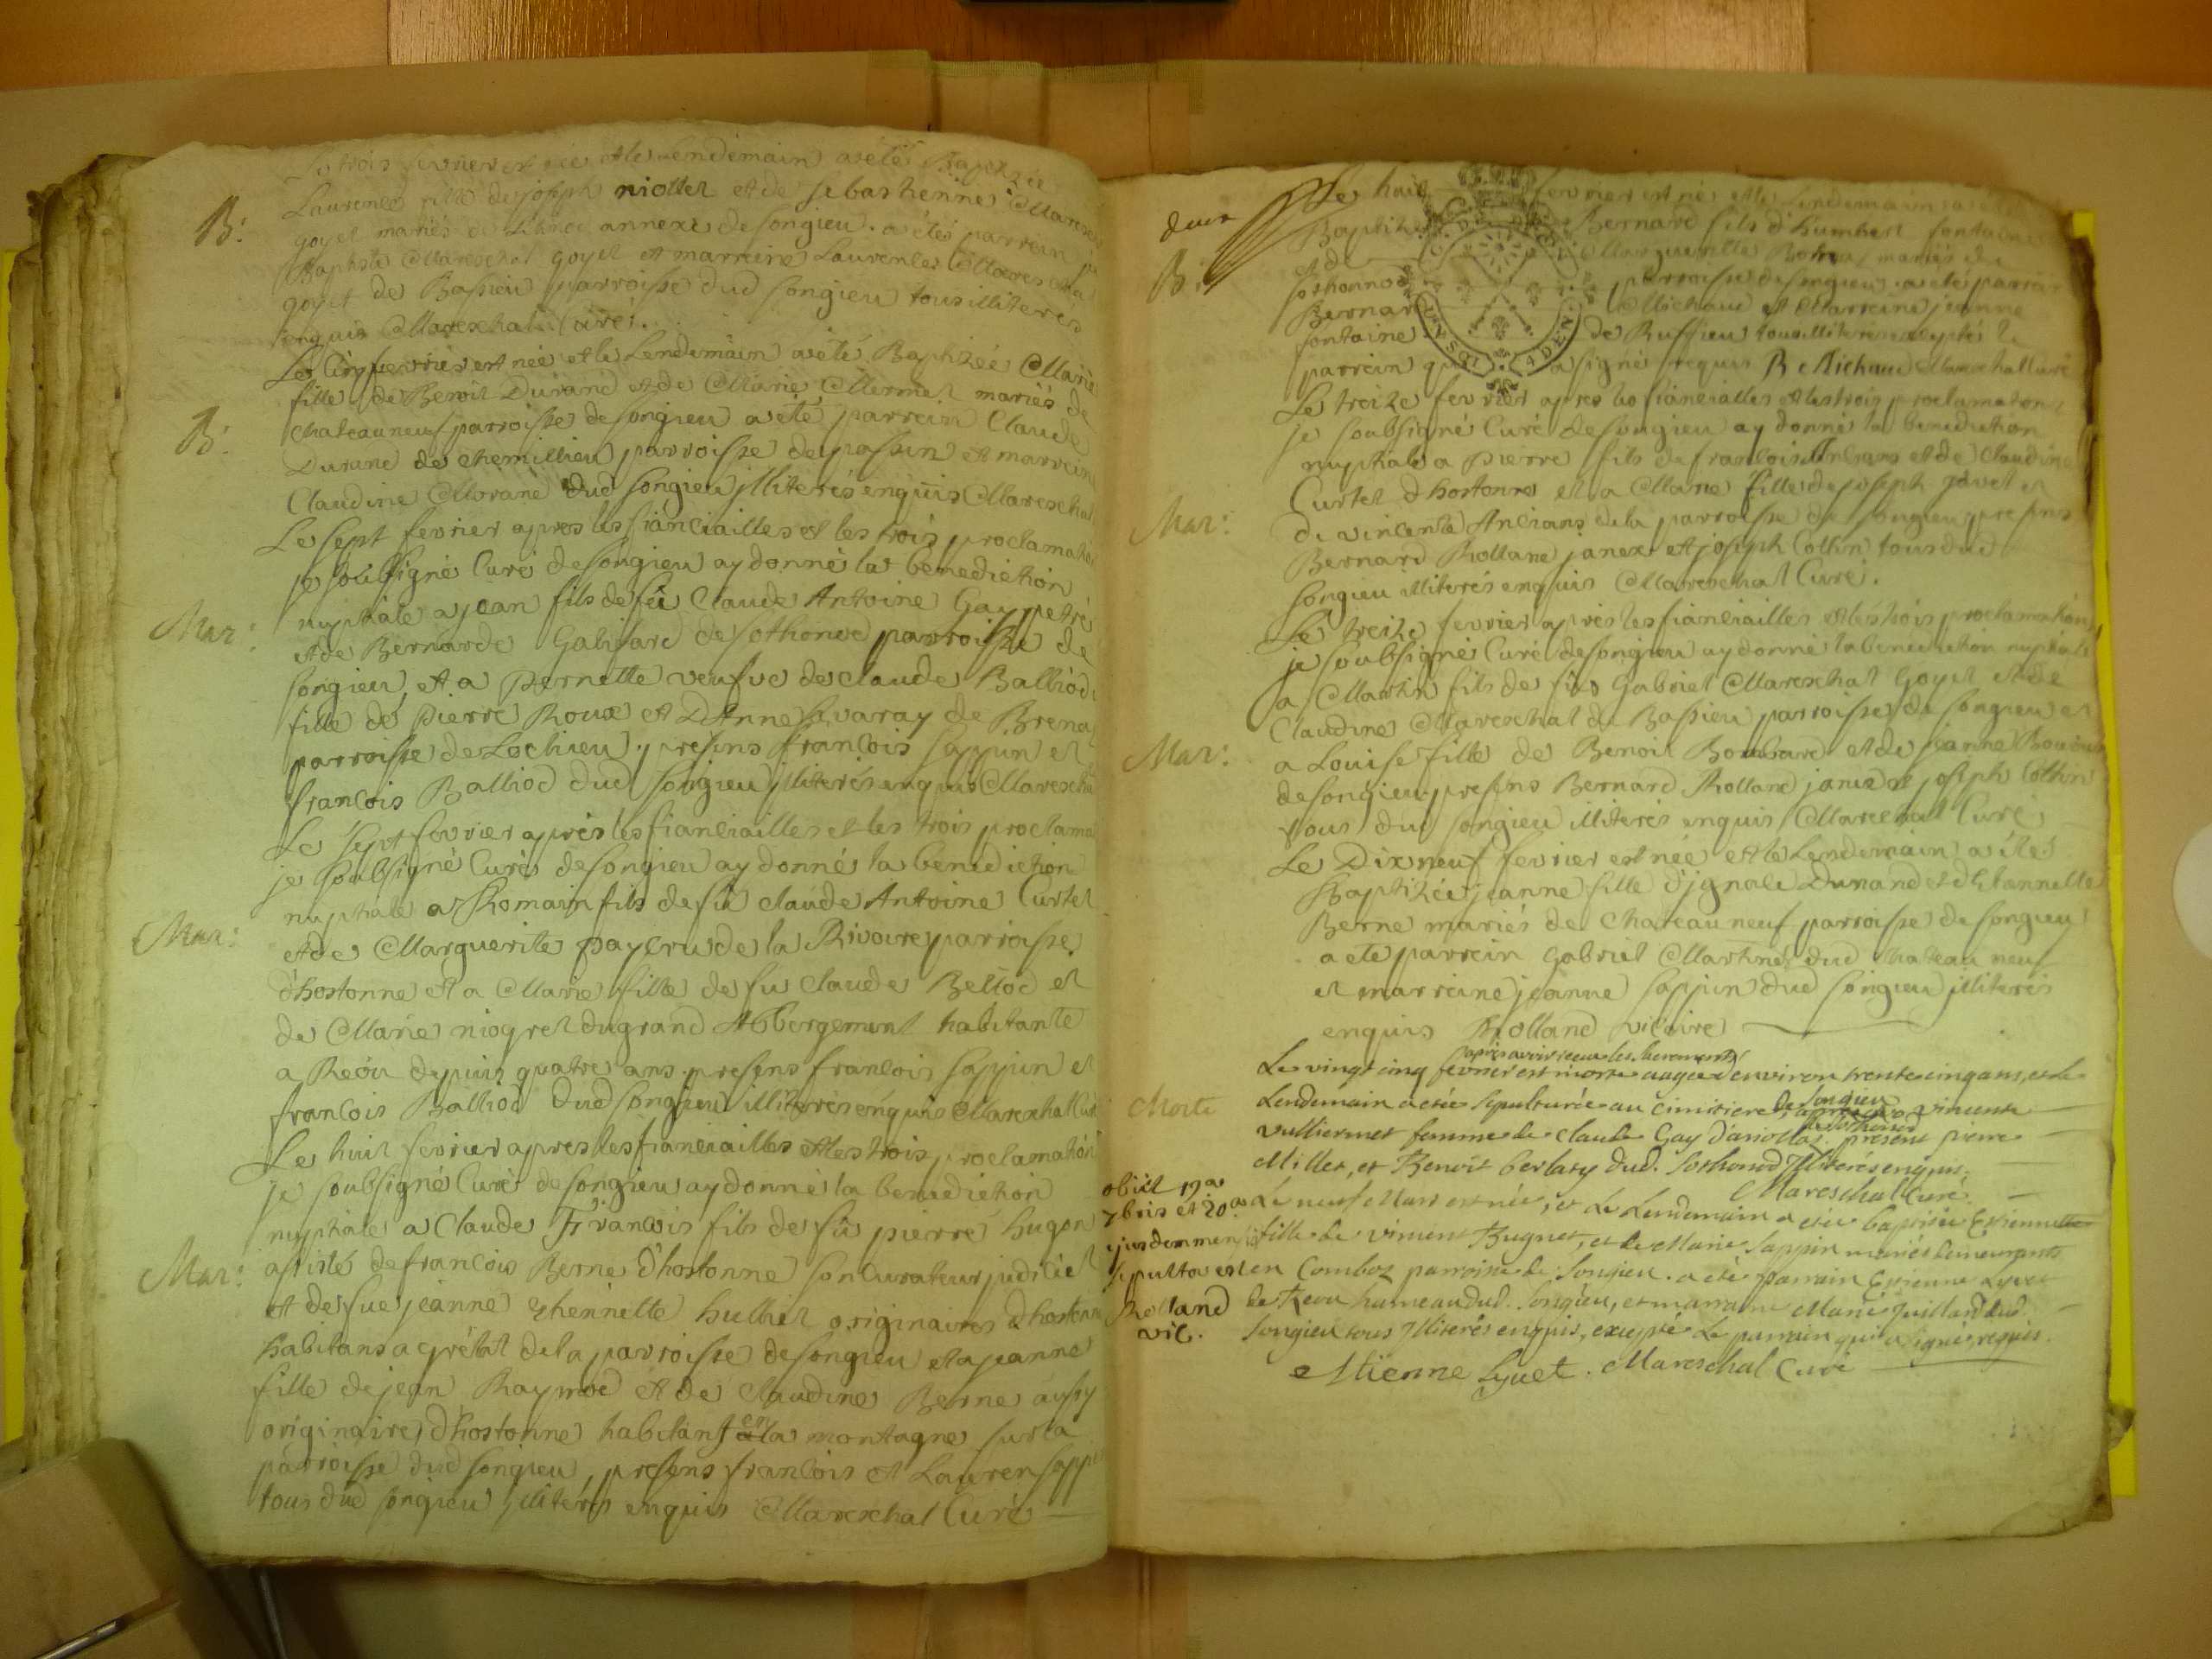 Le trois fevrier est née et le Lendemain a eté Baptizée
B:
Laurence fille de joseph niollet et de sebastienne Mareschal
goyet mariés de annexe de songieu. a été parrein
Baptiste Mareschal goyet et marreine Laurence Mareschal
goyet de Bassieu parroisse dud songieu tous illiterés
enquis Mareschal Curé.
Le cinq fevrier est née et le Lendemain a eté Baptizée Marie
fille de Benoit Durand et de Marie Mermet mariés de
B:
chateauneuf parroisse de songieu a eté parrein Claude
Durand de chemillieu parroisse de passin et marreine
Claudine Morand dud songieu illiterés enquis Mareschal
Le sept fevrier apres les fianciailles et les trois proclamations
je soubsigné Curé de songieu ay donné la benediction
Mar:
nuptiale a jean fils de fû Claude Antoine Gay petré
et de Bernarde Gabifard de sothonod parroisse de
songieu, et a pernette veufve de claude Balliod
fille de pierre Roux et D'Anne savaray de Brena
parroisse de Lochieu. presens francois sappin et
francois Balliod dud songieu illiterés enquis Mareschal
Le sept fevrier après les fianciailles et les trois proclama
je soubsigné Curé de songieu ay donné la benediction
nuptiale a Romain fils de fû claude Antoine Curtet
Mar:
et de Marguerite paycru de la Rivoire parroisse
d'hostonne et a Marie fille de fu claude Belliod et
de Marie niogret du grand Abbergement habitante
a Reou depuis quatre ans. presens francois sappin et
francois Balliod dud songieu illiterés enquis Mareschal Curé
Le huit fevrier apres les fianciailles et les trois proclamation
je soubsigné Curé de songieu ay donné la benediction
nuptiale a Claude François fils de fû pierre hugon
Mar:
assisté de francois Berne d'hostonne son curateur judiciel
et de fue jeanne thennette hulliet originaires d'hostonne
habitans a grélat de la parroisse de songieu et a jeanne
fille de jean Raymod et de claudine Berne aussy
originaires d'hostonne habitant en la montagne sur la
parroisse dud songieu, presens francois et Lauren sappin
tous dud songieu illiterés enquis Mareschal Curé
deux
Le huit fevrier est né et le Lendemain a eté
Baptizé Bernard fils d'humbert fontaine
B:
et de Marguerite mariés de
sothonnod parroisse de songieu. a eté parrein
Bernard Michaud et Marreine jeanne
fontaine de Ruffieu tous illiterés exceptés le
parrein qui a signé requis B Michaud Mareschal Curé
Le treize fevrier apres les fianciailles et les trois proclamations
je soubsigné Curé de songieu ay donné la benediction
nuptiale a pierre fils de francois Ancians et de Claudine
Curtet d'hostonne et a Marie fille de joseph et
Mar:
de vincente Ancians de la parroisse de songieu, presens
Bernard Rolland janex et joseph Collin tous dud
songieu illiterés enquis Mareschal Curé.
Le treize fevrier après les fianciailles et les trois proclamations
je soubsigné Curé de songieu ay donné la benediction nuptiale
a Martin fils de feu Gabriel Mareschal Goyet et de
Claudine Mareschal de Bassieu parroisse de songieu et
Mar:
a Louise fille de Benoit Bombard et de jeanne
de songieu. presens Bernard Rolland janex et joseph Collin
tous dud songieu illiterés enquis Mareschal Curé
Le Dix neuf fevrier est née et le Lendemain a été
Baptizée jeanne fille d'ignace Dunand et d'Etannette
Berne mariés de Chateau neuf parroisse de songieu
a ete parrein Gabriel Martiné dud chateau neuf
et marreine jeanne sappin dud songieu illiterés
enquis Rolland vicaire
après avoir receu les sacrements
Le vingt cinq fevrier est morte aagée d'environ trente cinq ans, et le
Lendemain a etée sepulturée au cimitiere de songieu vincente
Morte
Vulliermet femme de claude Gay d'ariollas de sothonod. présent pierre
Millet, et Benoit berlaty dud. sothonod illiterés enquis.
Mareschal Curé
obiit 19a
7bris et 20a
ejusdem mensis
sepulta est
Rolland
vic.
Le neuf Mars est née, et le Lendemain a etée baptisée Estiennette
fille de vincent Bugnet, et de Marie sappin mariés demeurants
en Comboz parroisse de songieu. a eté parrain Estienne Lyvet
de Reou hameau dud. songieu, et marraine Marie juillard dud.
songieu tous illiterés enquis, excepté le parrain qui a signé, requis.
Etienne Lyuet. Mareschal Curé